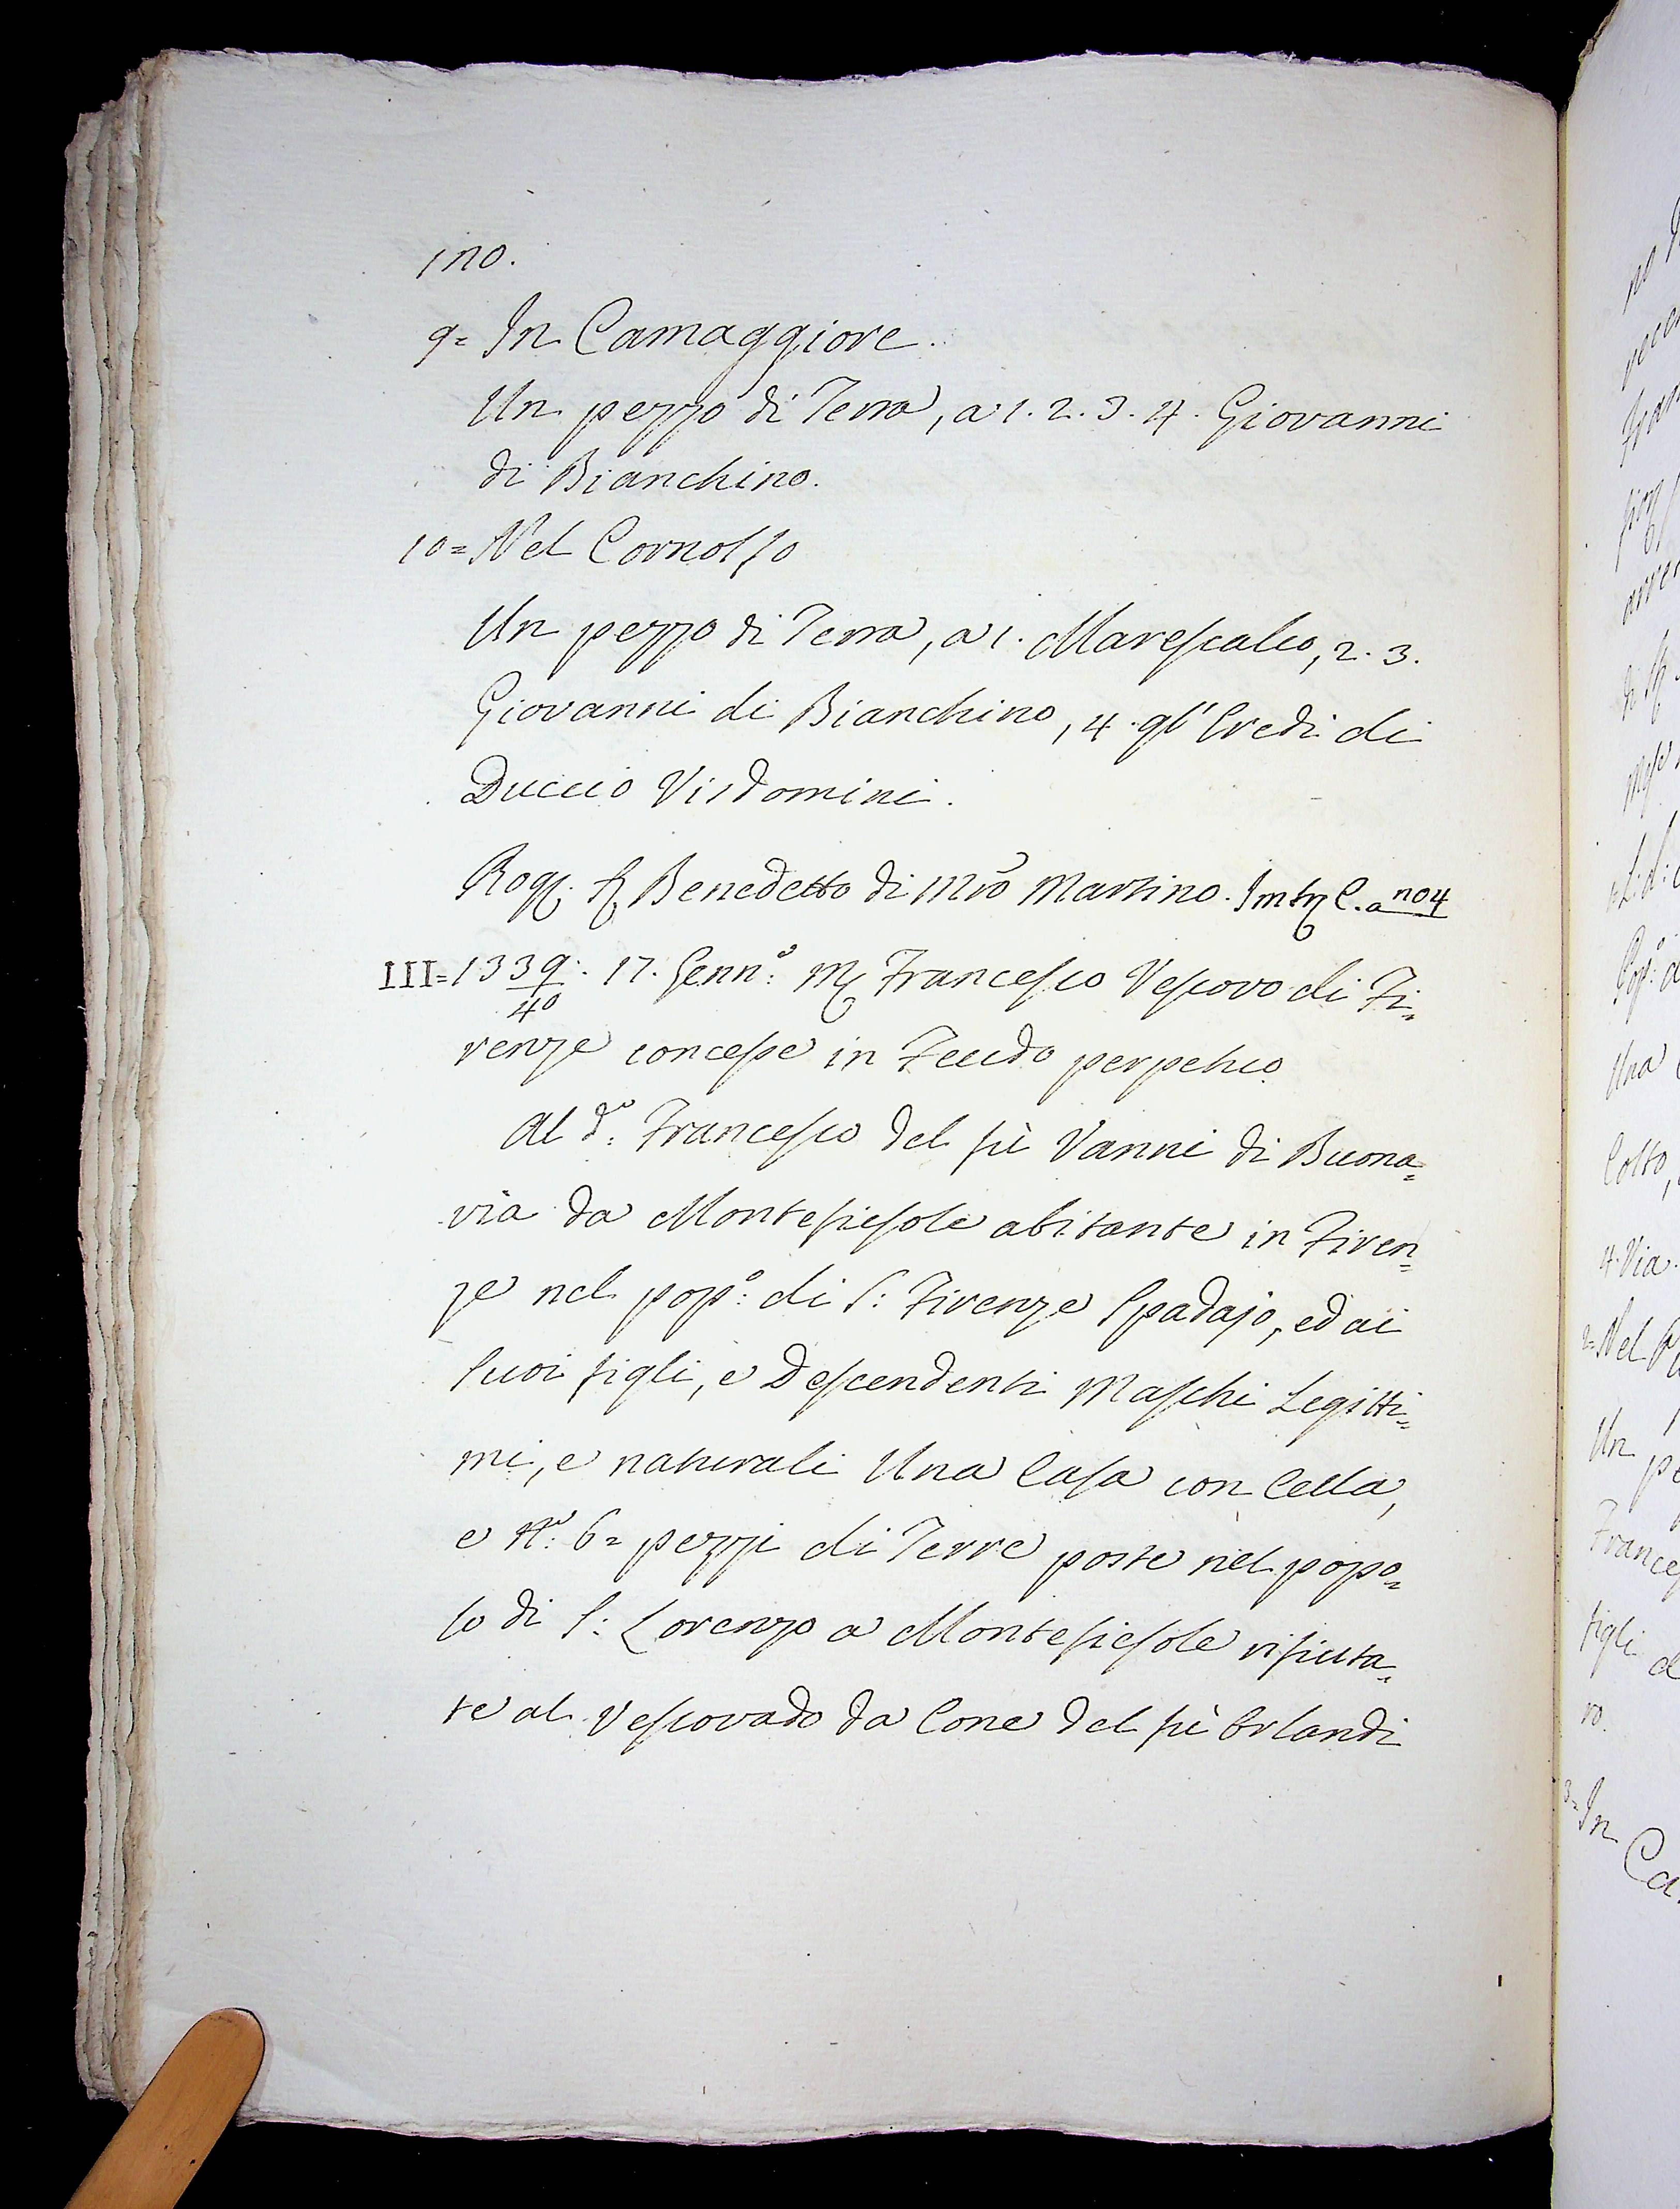 ino.
9= In Camaggiore.
Un pezzo di Terra, a 1. 2. 3. 4. Giovanni
di Bianchino.
10= Nel Cornolso
Un pezzo di Terra, a 1. Marescalco, 2. 3.
Giovanni di Bianchino, 4. gl' Eredi di
Duccio Visdomini.
Rog. Benedetto di Mro Martino. C. a no 4
III= 1339. 17. Genn.o: Mg Francesco Vescovo di Fi=
40
renze concesse in Feudo perpetuo
Al d.o: Francesco del fù Vanni di Buona=
via da Monteficsole abitante in Firen=
ze nel pop.o: di S: Firenze Spadajo, ed ai
suoi figli, e Descendenti Maschi Legitti=
mi, e naturali Una Casa con Cella,
e N.o: 6= pezzi di Terre poste nel popo=
lo di S: Lorenzo a Monteficsole rifiuta=
te al Vescovado da Cone del fù Orlandi
no
Una
Cotto,
4. Via.
2= Nel
Un
figli
ro.
3= In